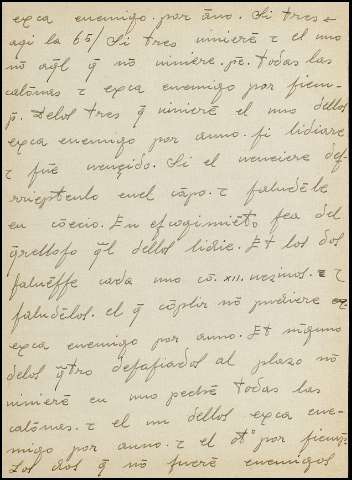 exca enemigo. por ãno. Si tres 
agi la 65/ Si tres uinierẽ τ el uno
nõ aq̃l q̃ nõ uiniere. pẽ. todas las
calõnnas. τ exca enemigo por fiem-
p̃. Delos tres q̃ uinierẽ el uno dellos
exca enemigo por anno. si lidiare
τ fuẽ uençido. Si el uenciere def-
rrieptenlo enel cãpo. τ saludẽle
en cõcejo. En escogimiẽto sea del
q̃relloso q̃l dellos lidie. Et los dos
saluẽsse cada uno cõ. xii. uezinos. τ
saludẽlos. el q̃ cõplir nõ pudiere
exca enemigo por anno. Et nĩguno
delos q̃tro desafiados al plazo nõ
uinierẽ en uno pechẽ todas las
calõnnas. τ el un dellos exca ene-
migo por anno. τ el otº por fiemp̃
Los dos q̃ nõ fuerẽ enemigos